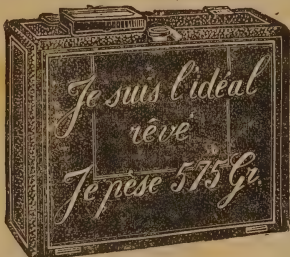 Je suis l'idéal
rêvé
Je pèse 575 Gr.